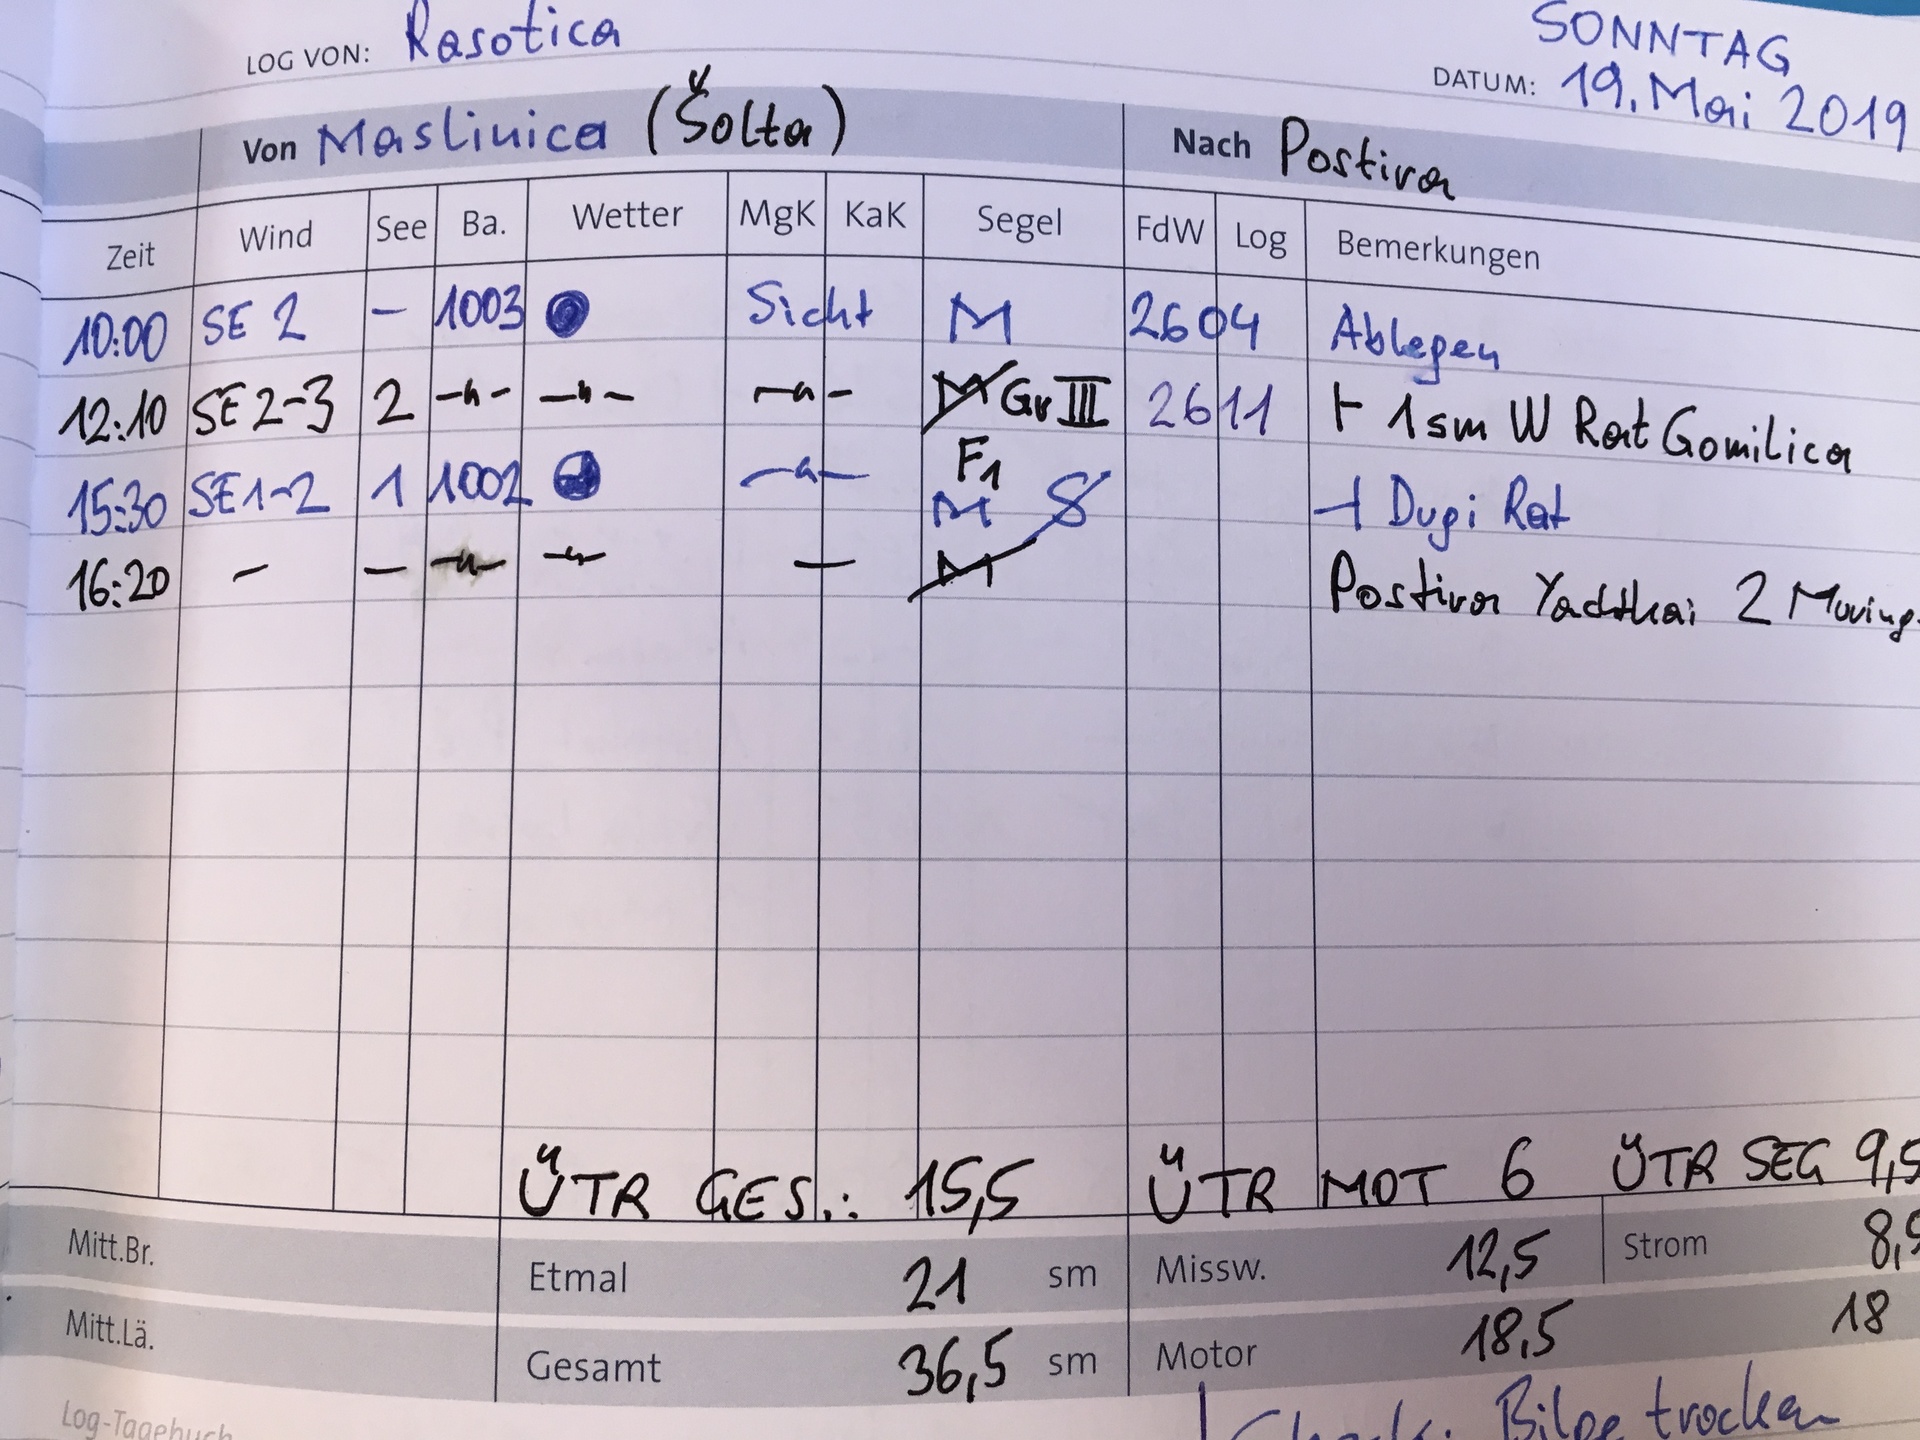 SONNTAG
LOG VON: Rasotica DATUM: 19. Mai 2019
Von Maslinica (Šolta) Nach Postira
Zeit Wind See Ba. Wetter MgK KaK Segel FdW Log Bemerkungen
10:00 SE 2 – 1003 Sicht M 2604 Ablegen
12:10 SE 2-3 2 -"- -"- -"- M Gr III 2611 ⊢ 1 sm W Rat Gomilica
F1
15:30 SE 1-2 1 1002 -"- M ⊣ Dugi Rat
16:20 – – -"- -"- — M Postira Yachtkai 2 Muring.
ÜTR GES.: 15,5 ÜTR MOT 6 ÜTR SEG 9,5
Mitt.Br. Etmal 21 sm Missw. 12,5 Strom 8,5
Mitt.Lä. Gesamt 36,5 sm Motor 18,5 18
Log-Tagebuch Bilge trocken